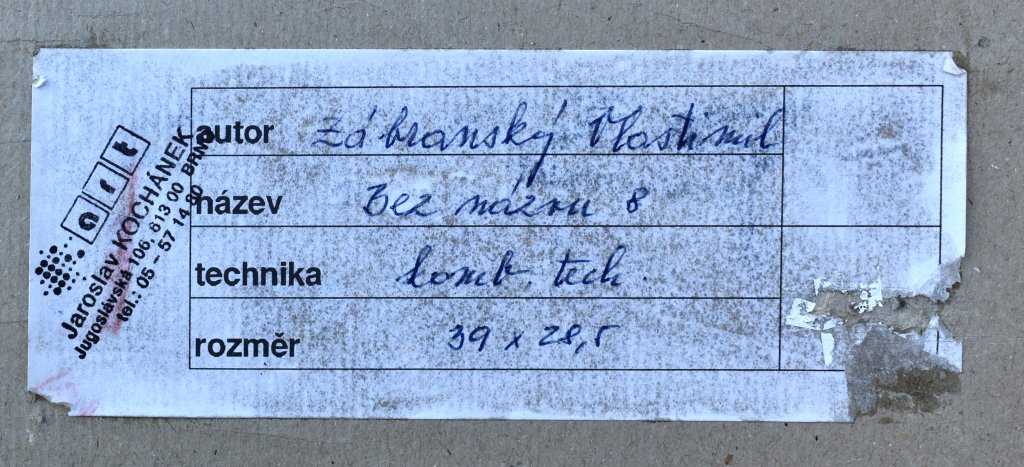 art
Jaroslav KOCHÁNEK
Jugoslávská 106, 613 00 BRNO
tel.: 05 – 57 14 90
autor Zábranský Vlastimil
název Bez názvu 8
technika komb. tech.
rozměr 39 x 28,5